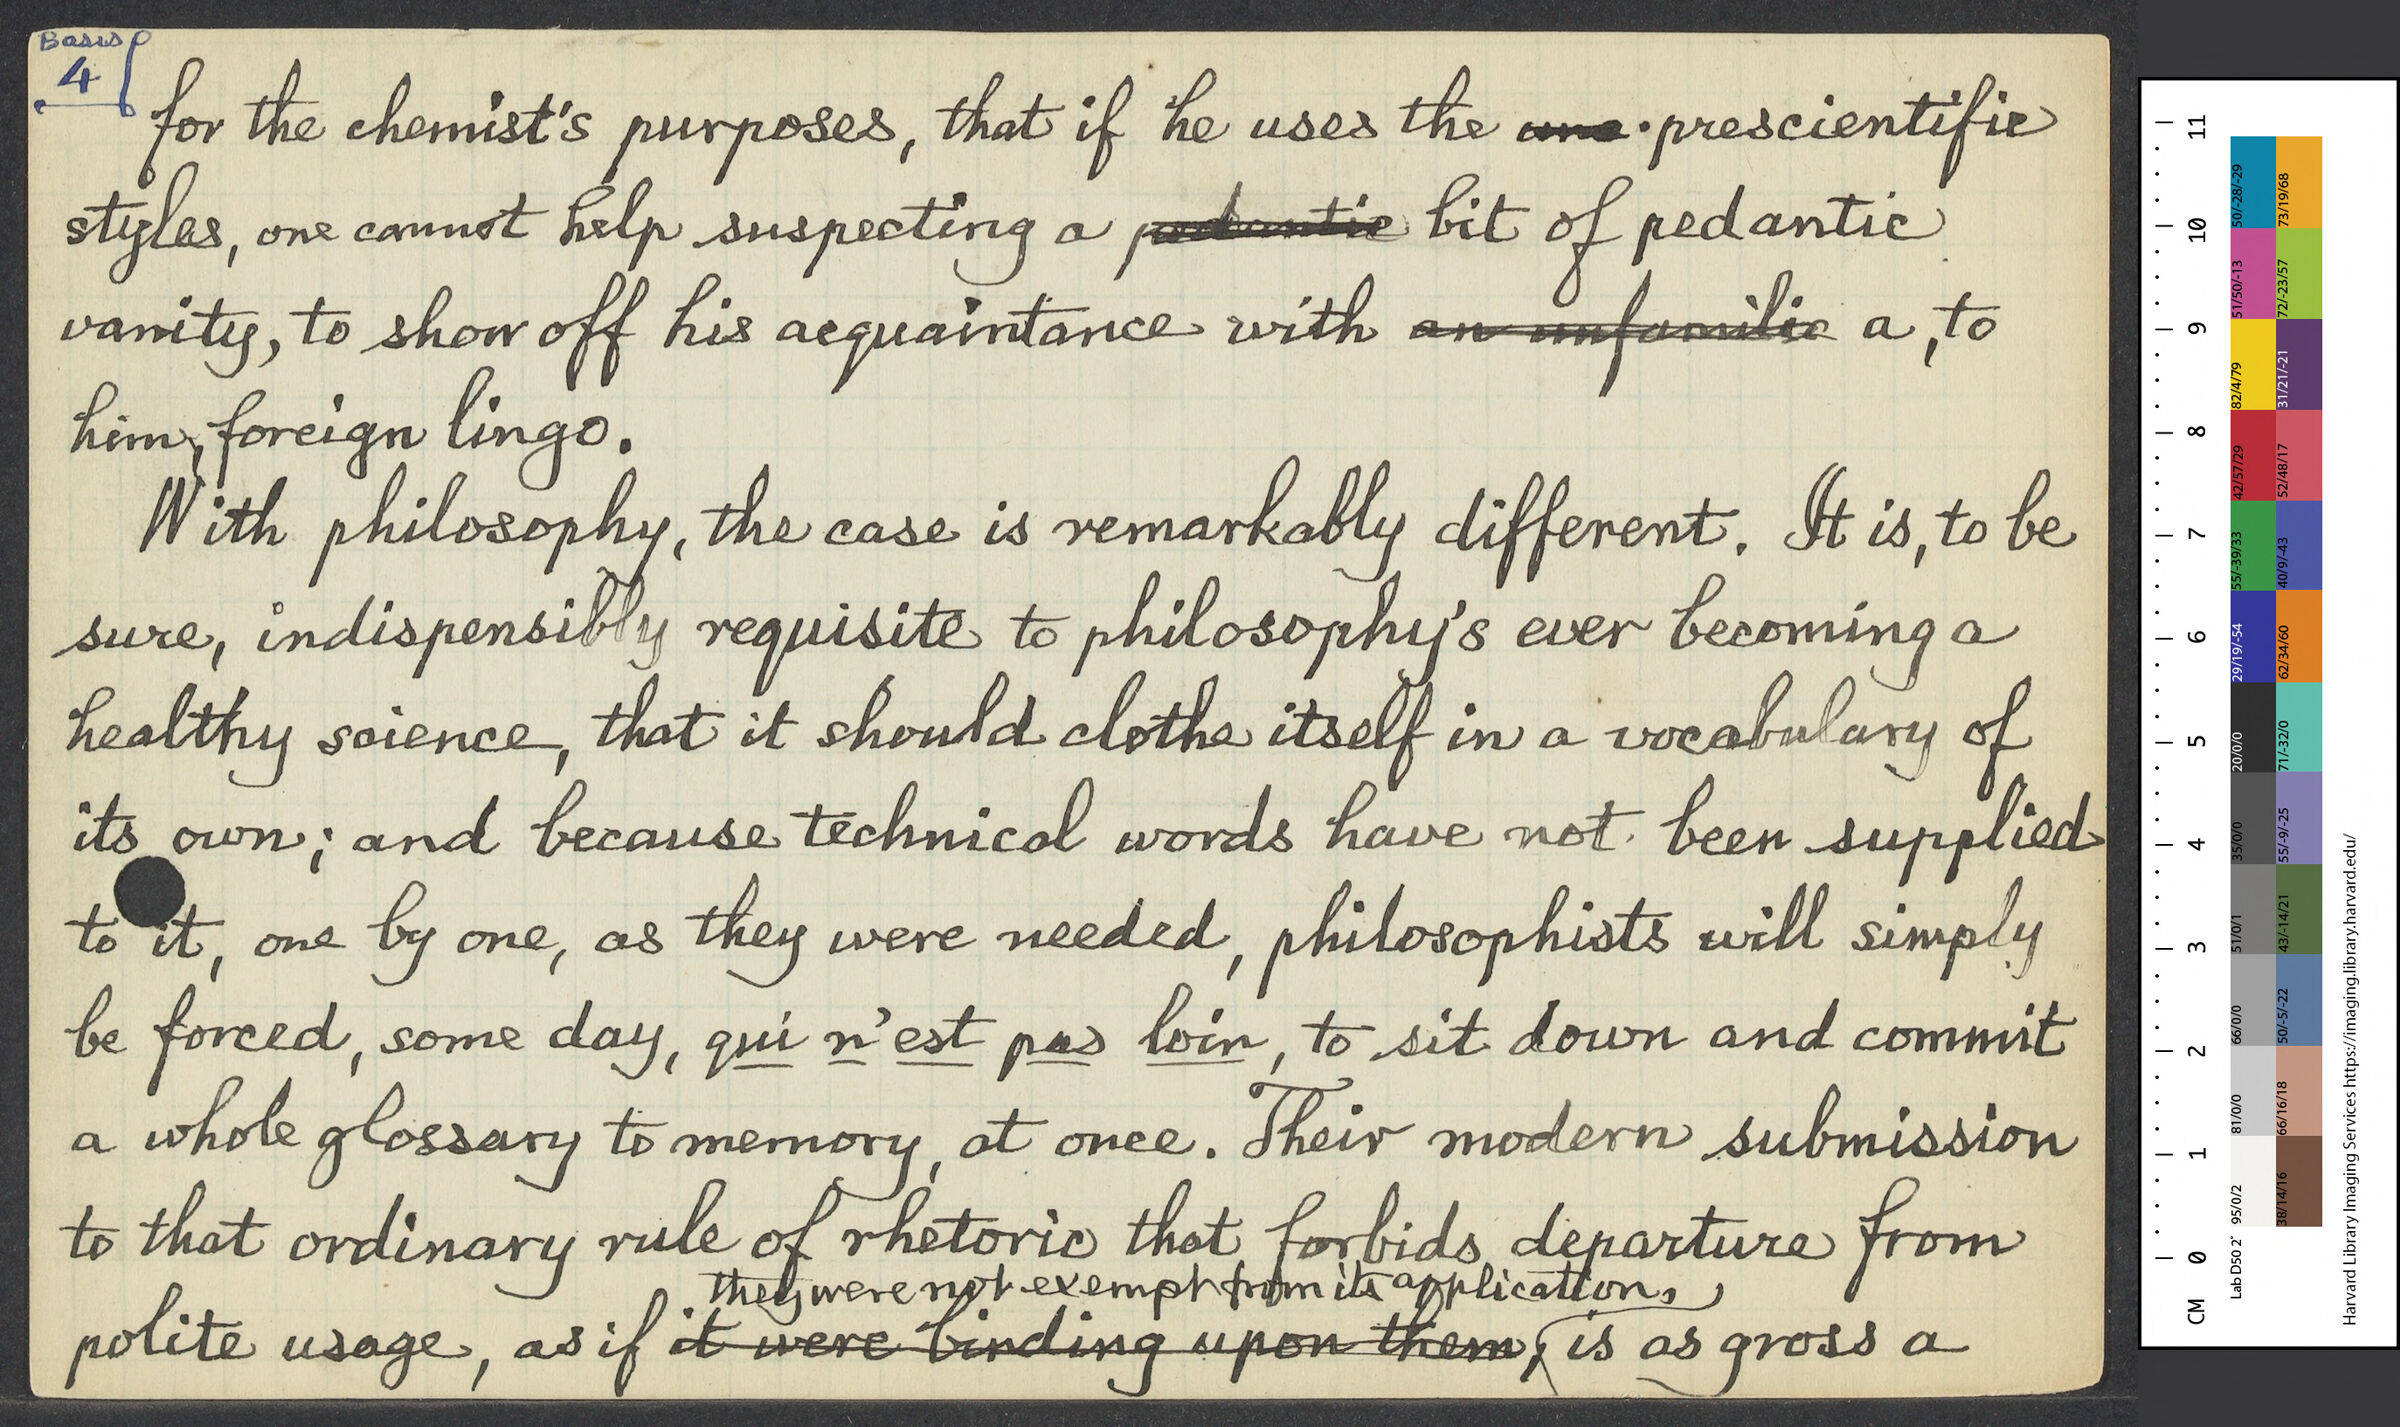 Basis p
4
for the chemist's purposes, that if he uses the una prescientific
styles, one cannot help suspecting a pedantic bit of pedantic
vanity, to show off his acquaintance with an unfamilia a, to
him, foreign lingo.
With philosophy, the case is remarkably different. It is, to be
sure, indispensibly requisite to philosophy's ever becoming a
healthy science, that it should clothe itself in a vocabulary of
its own; and because technical words have not been supplied
to it, one by one, as they were needed, philosophists will simply
be forced, some day, qui n'est pas loin, to sit down and commit
a whole glossary to memory, at once. Their modern submission
to that ordinary rule of rhetoric that forbids departure from
they were not exempt from its application,
polite usage, as if it were binding upon them, is as gross a
CM 0 1 2 3 4 5 6 7 8 9 10 11
Lab D50 2° 95/0/2 81/0/0 66/0/0 51/0/1 35/0/0 20/0/0 29/19/-54 55/-39/33 42/57/29 82/4/79 51/50/-13 50/-28/-29
38/14/16 66/16/18 50/-5/-22 43/-14/21 55/-9/-25 71/-32/0 62/34/60 40/9/-43 52/48/17 31/21/-21 72/-23/57 73/19/68
Harvard Library Imaging Services https://imaging.library.harvard.edu/